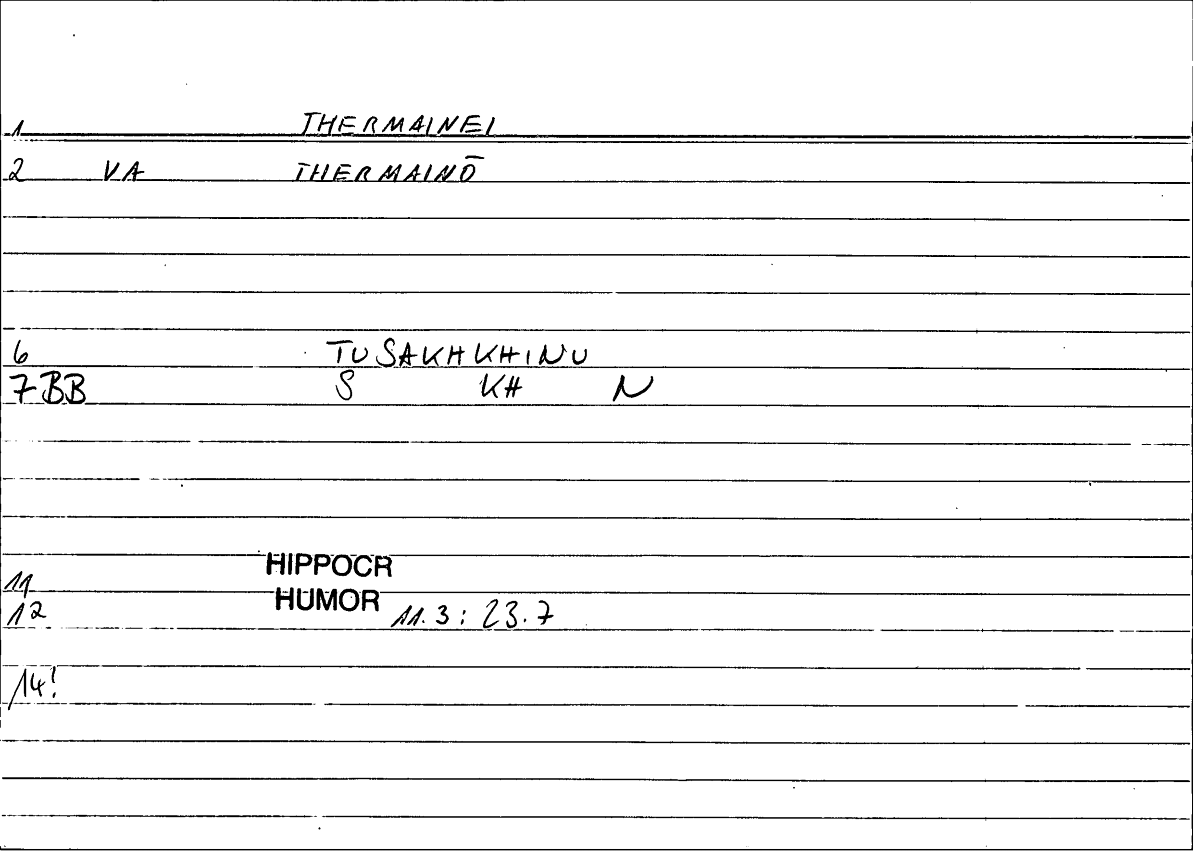 1 THERMAINEI
2 VA THERMAINŌ
6 TUSAKHKHINU
7 BB S KH N
HIPPOCR
11
HUMOR
12 11.3: 23.7
14!